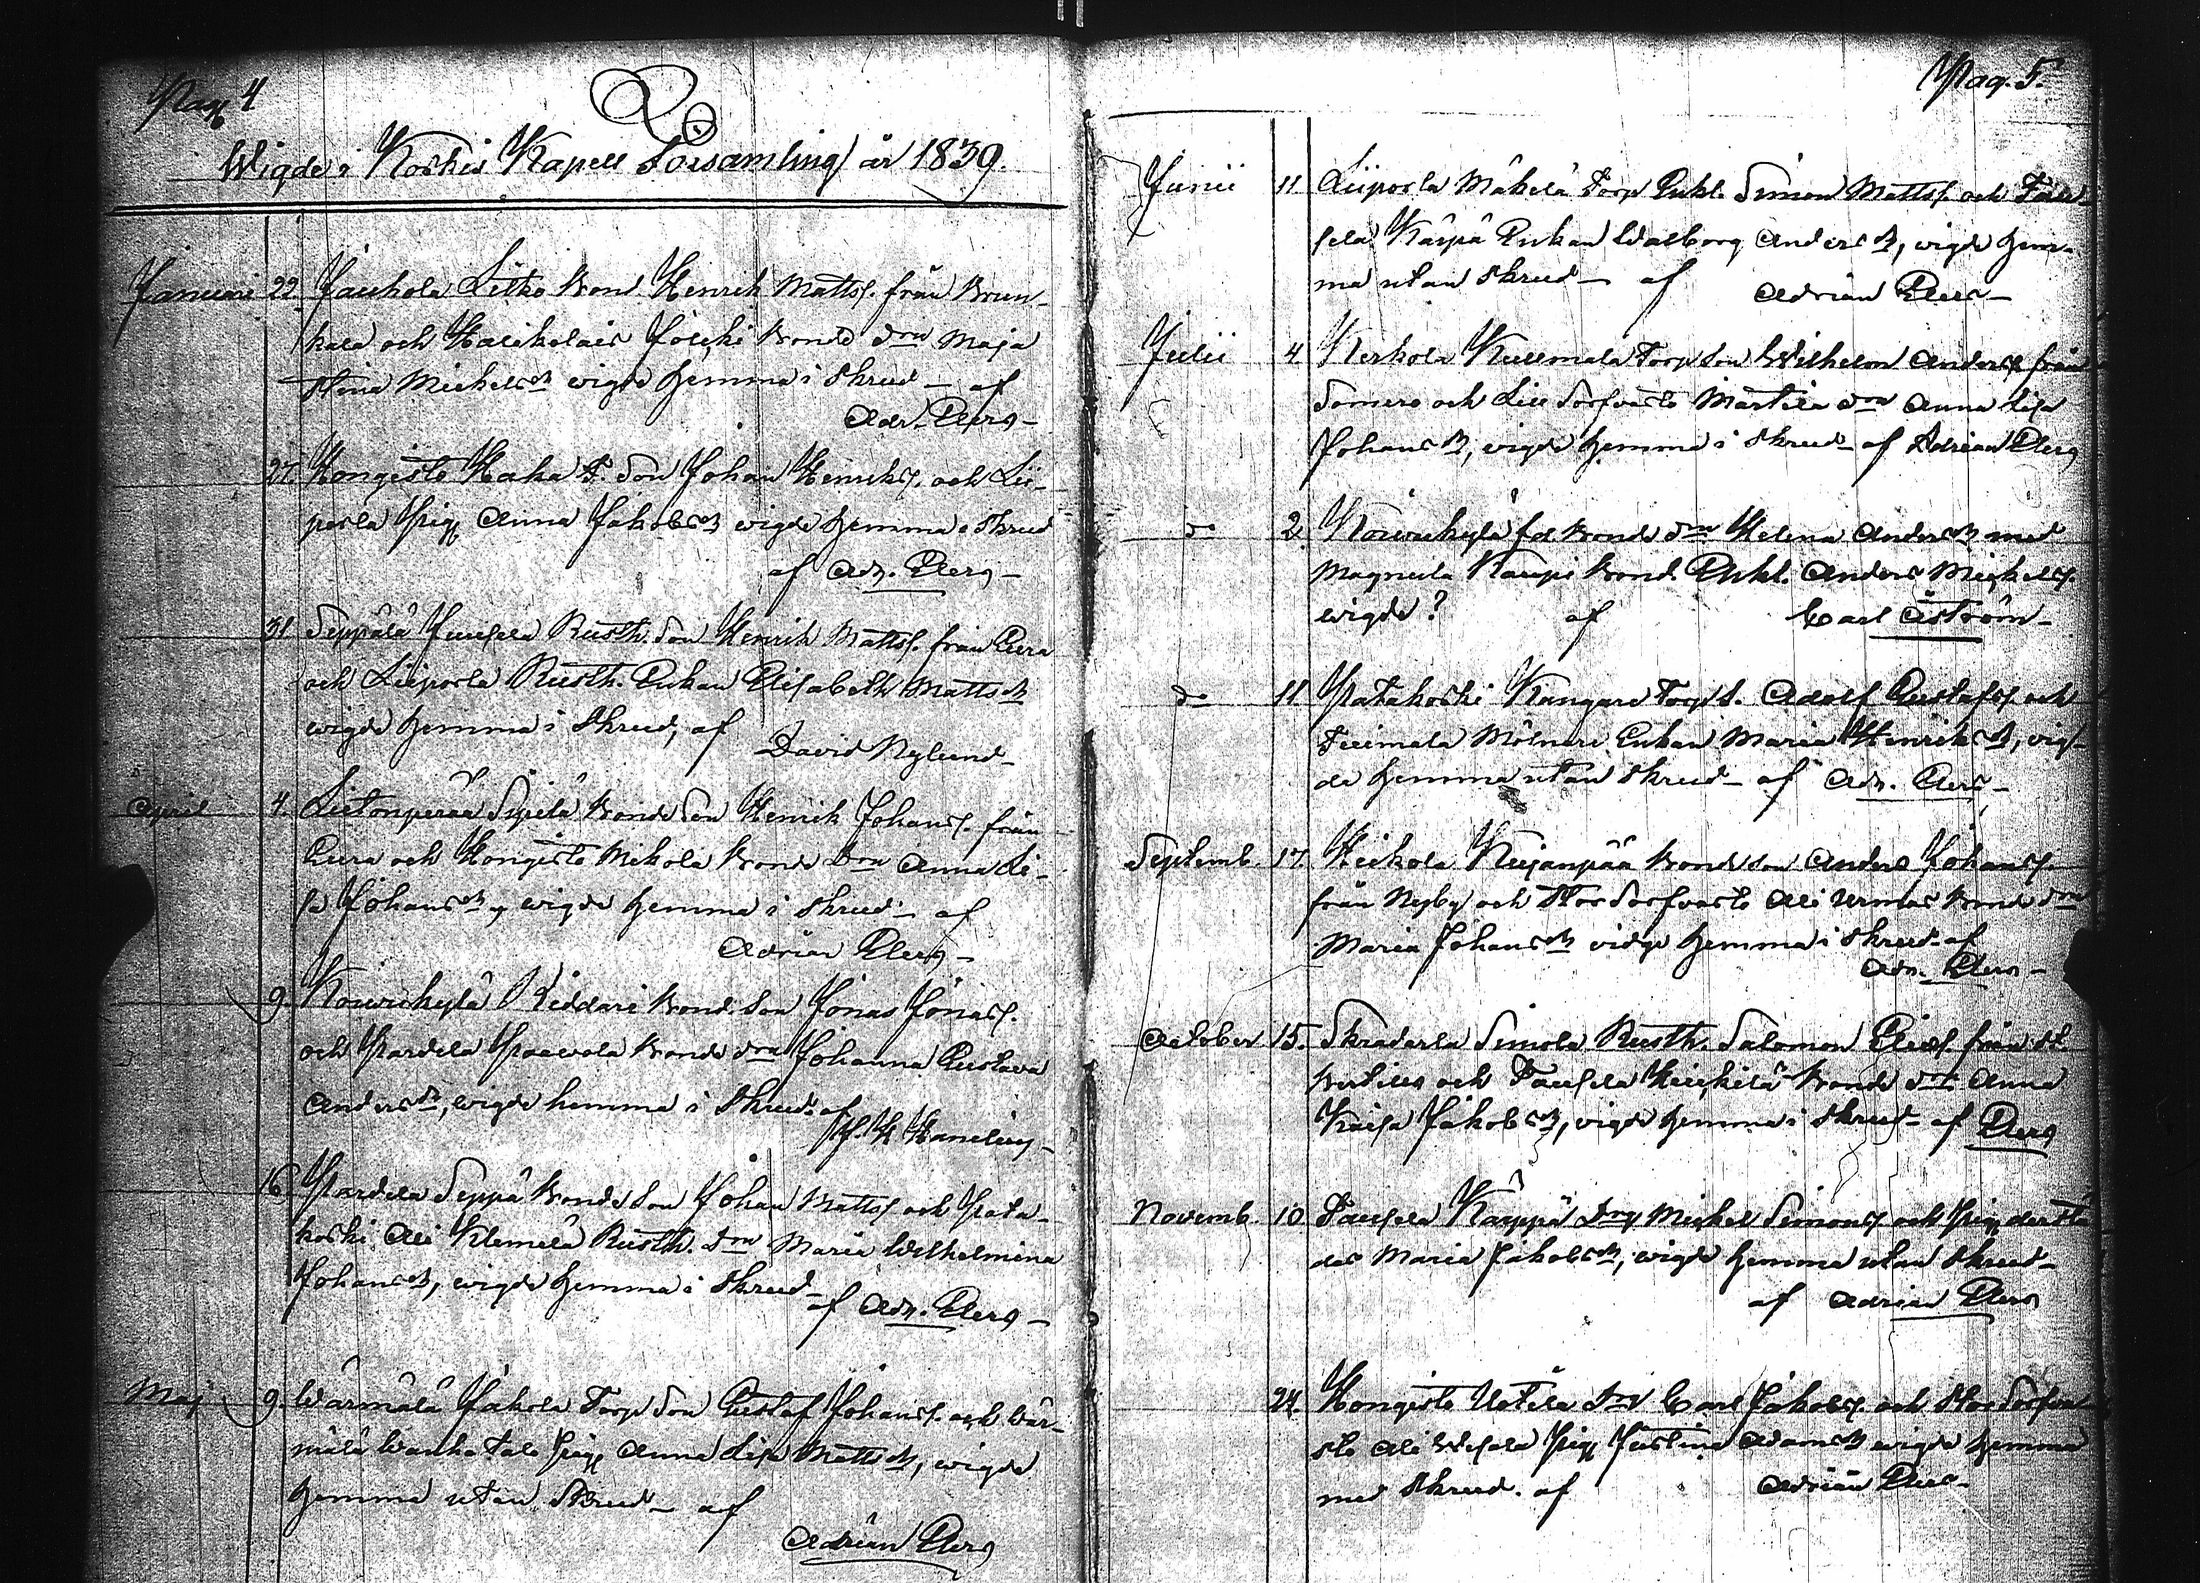 Pag. 4
Wigde i Koskis Kapell Församling år 1839.
Januari 22. Jauhola Litko Bond. Henrik Mattss. från Brun-
kala och Halikolais Jöicki Bonde dra Maja
Stina Michelsdr wigde hemma i skrud – af
Adr. Elers –
27. Hongisto Haka T. Son Johan Henrikss. och Lii-
porla Pig. Anna Jakobsdr wigde hemma i skrud
af Adr. Elers –
31 Seppälä Juusela Rusth. Son Henrik Mattss. från Eura
och Liiporla Rusth. Enkan Elisabeth Mattsdr
wigde hemma i skrud, af
David Nylund –
April 4. Lietonperää Sipilä Bonde Son Henrik Johanss. från
Eura och Hongisto Mikola Bonde dra Anna Li-
sa Johansdr, wigde hemma i skrud – af
Adrian Elers –
9. Kouvikylä Riddari Bond. Son Jonas Jonass.
och Pardela Paavola Bonde dra Johanna Gustava
Andersdr, wigde hemma i skrud af
16 Pardela Seppä Bonde Son Johan Mattss. och Pata-
koski Ali Klemelä Rusth. dra Maria Wilhelmina
Johansdr, wigde hemma i skrud –
af Adr. Elers –
Maj 9. Wärmälä Jakola Torp Son Gustaf Johanss. och Wär-
mälä Wanhatalo Pig. Anna Lisa Mattsdr, wigde
hemma utan skrud – af
Adrian Elers
Pag. 5.
Junii 11 Liiporla Mäkelä Torp Enkl. Simon Mattss. och Tau-
sela Käpä Enkan Walborg Andersdr, wigde hem-
ma utan skrud – af Adrian Elers –
Julii 4 Kerkola Kullmala Torp Son Wilhelm Anderss. från
Somero och Lill Sorfvasto Marttila dra Anna Lisa
Johansdr, wigde hemma i skrud – af Adrian Elers
do 2. Kouvikylä fd Bonde dra Helena Andersdr med
Magnula Kaupi Bond. Enkl. Anders Michelss.
wigde? af Carl Åström –
do 11 Patakoski Kangare Torp S. Adolf Gustafss. och
Tuimala Mölnari Enkan Maria Henriksdr, wig-
de hemma utan skrud – af Adr. Elers –
Septemb. 17. Heikola Kujanpää Bonde Son Anders Johanss.
från Nyby och Stor Sorfvasto Ali Urmas Bonde dra
Maria Johansdr vidge hemma i skrud – af
Adr. Elers –
October 15. Skräderla Simola Rusth. Salomon Eliess. från St.
Bertills och Tausela Heickilä Bonde dra Anna
Kaisa Jakobsdr, wigde hemma i skrud – af Elers
Novemb. 10 Tausela Käppä Drg Michel Simonss. och Pig. derstä
des Maria Jakobsdr, wigde hemma utan skrud –
af Adrian Elers
24. Hongisto Uotila drg Carl Jakobss. och Stor Sorfva-
sto Ali Wesala Pig. Justina Adamsdr wigde hemma
med skrud. af Adrian Elers –